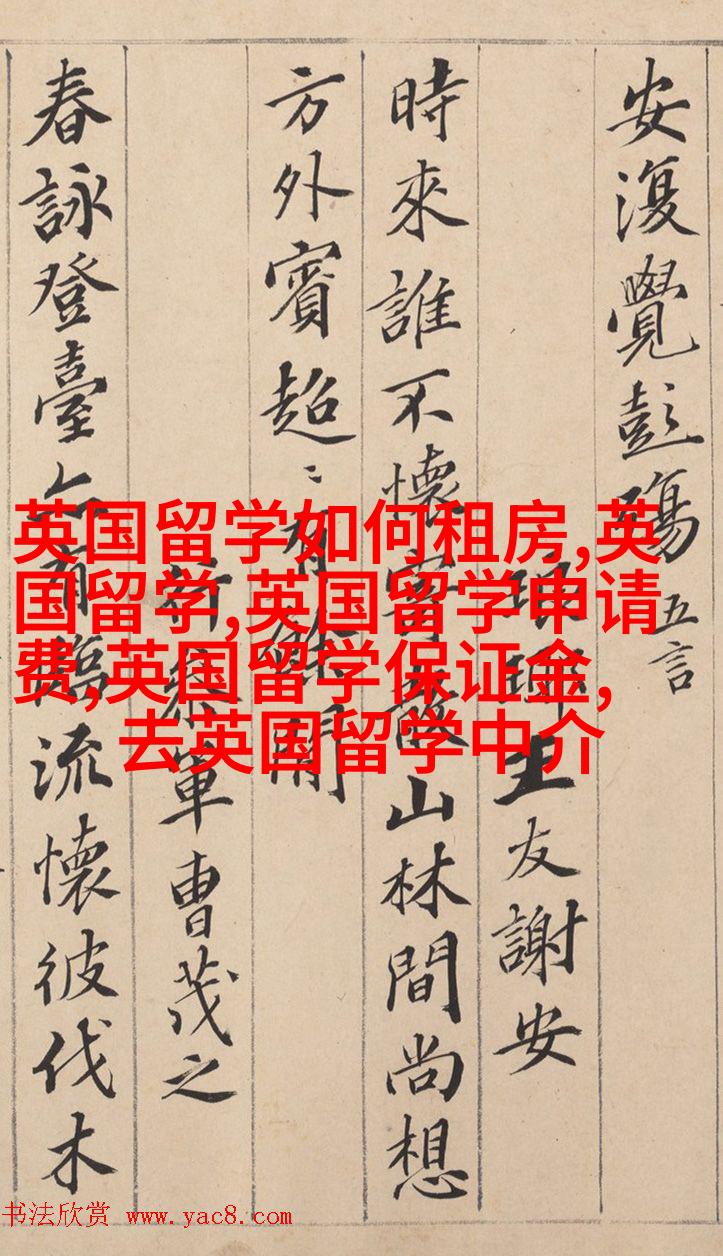 安復覺彭殤五言
琅琊王友謝安
時來誰不懷寄散山林間尚想
方外賓超〻有餘閒
行參軍曹茂之
春詠登臺亦有臨流懷彼伐木
英国留学如何租房,英
国留学,英国留学申请
费,英国留学保证金,
去英国留学中介
书法欣赏 www.yac8.com